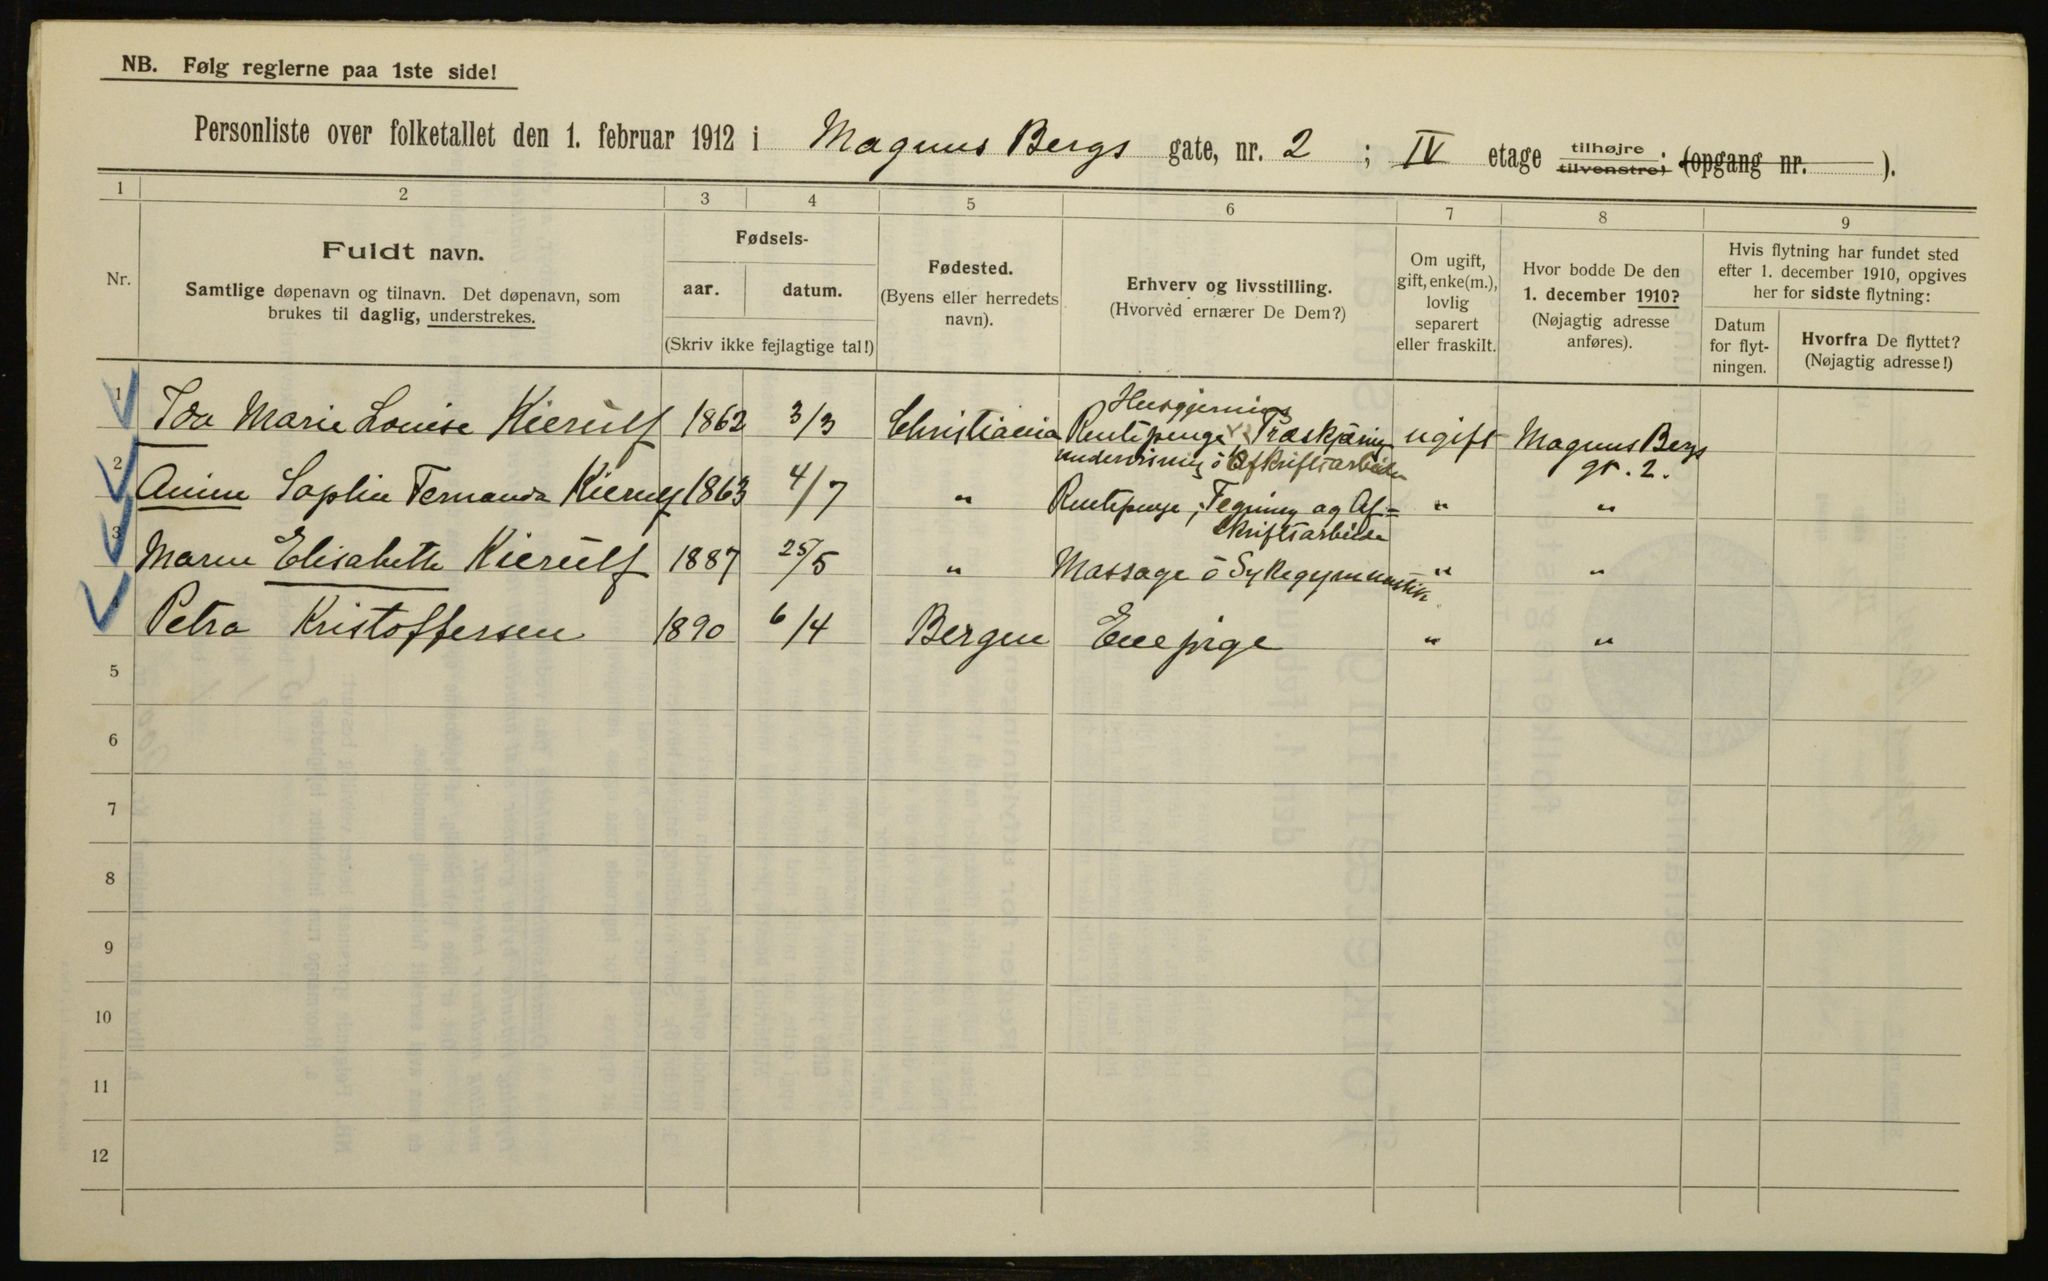 NB. Følg reglerne paa 1ste side!
Personliste over folketallet den 1. februar 1912 i Magnus Bergs gate, nr. 2 ; IV etage tilhøjre tilvenstre; (opgang nr. ).
1 2 3 4 5 6 7 8 9
Nr.
Fuldt navn.
Samtlige døpenavn og tilnavn. Det døpenavn, som
brukes til daglig, understrekes.
Fødsels-
aar. datum.
(Skriv ikke fejlagtige tal!)
Fødested.
(Byens eller herredets
navn).
Erhverv og livsstilling.
(Hvorved ernærer De Dem?)
Om ugift,
gift, enke(m.),
lovlig
separert
eller fraskilt.
Hvor bodde De den
1. december 1910?
(Nøjagtig adresse
anføres).
Hvis flytning har fundet sted
efter 1. december 1910, opgives
her for sidste flytning:
Datum
for flyt-
ningen.
Hvorfra De flyttet?
(Nøjagtig adresse!)
Husgjerning
1 Ida Marie Louise Kierulf 1862 3/3 Christiania Rentepenge, Træskjæring ugift Magnus Bergs
undervisning ó Afskriftsarbeide gt. 2.
2 Sophie Fernanda Kierulf 1863 4/7 " Rentepenge, Tegning og Af=
skriftsarbeide " "
3 Maren Elisabeth Kierulf 1887 25/5 " Massage ó Sykegymnastik " "
Petra Kristoffersen 1890 6/4 Bergen Enepige " "
5
6
7
8
9
10
11
12